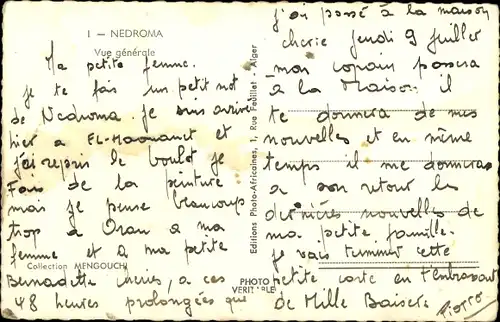 I - NEDROMA
Vue générale
Ma petite femme.
je te fais un petit mot
de Nedroma. je suis arrivé
hier a EL-Maouanit et
j'ai repris le boulot je
Fais de la peinture
mais je pense beaucoup
trop a Oran a ma
femme et a ma petite
Collection MENGOUCHI
Bernadette cheries, a ces
48 heures prolongées que
Editions Photo-Africaines, 1, Rue Feuillet - Alger
PHOTO
VERITABLE
j'ai passé à la maison
cherie jeudi 9 juillet
mon copain passera
à la Maison il
te donnera de mes
nouvelles et en même
temps il me donnera
a son retour les
dernières nouvelles de
ma petite famille.
je vais terminer cette
petite carte en t'embrassant
de Mille Baisers
Pierre